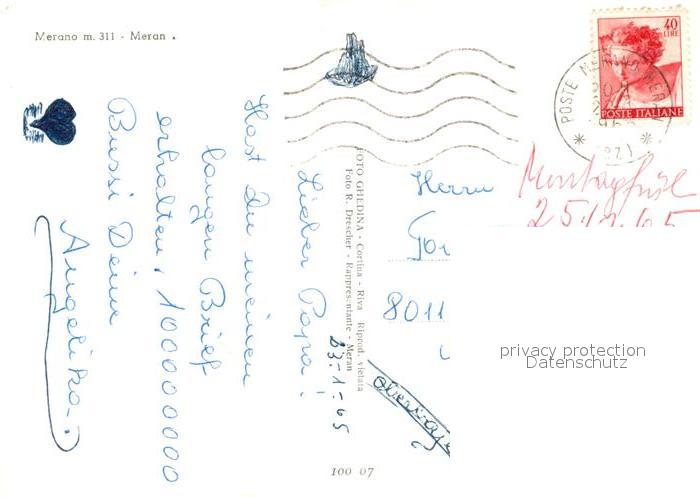 Merano m. 311 - Meran
40
LIRE
POSTE ITALIANE
POSTE MERANO
(BZ)
FOTO GHEDINA - Cortina - Riva Riprod. vietata
Foto R. Drescher - Rappresentante - Meran
23.1.65
Lieber Papa!
Hast du meinen
langen Brief
erhalten, 1000000000
Bussi Deine
Angelika.
Herrn
8011
Montagfrüh
privacy protection
Datenschutz
100 07